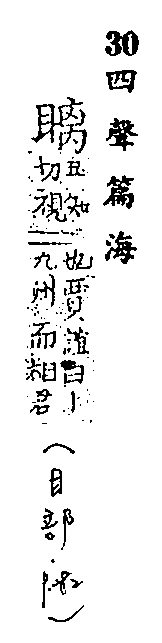 30四聲篇海
瞝丑知切視
也賈誼曰丨
九州而相君
(目部